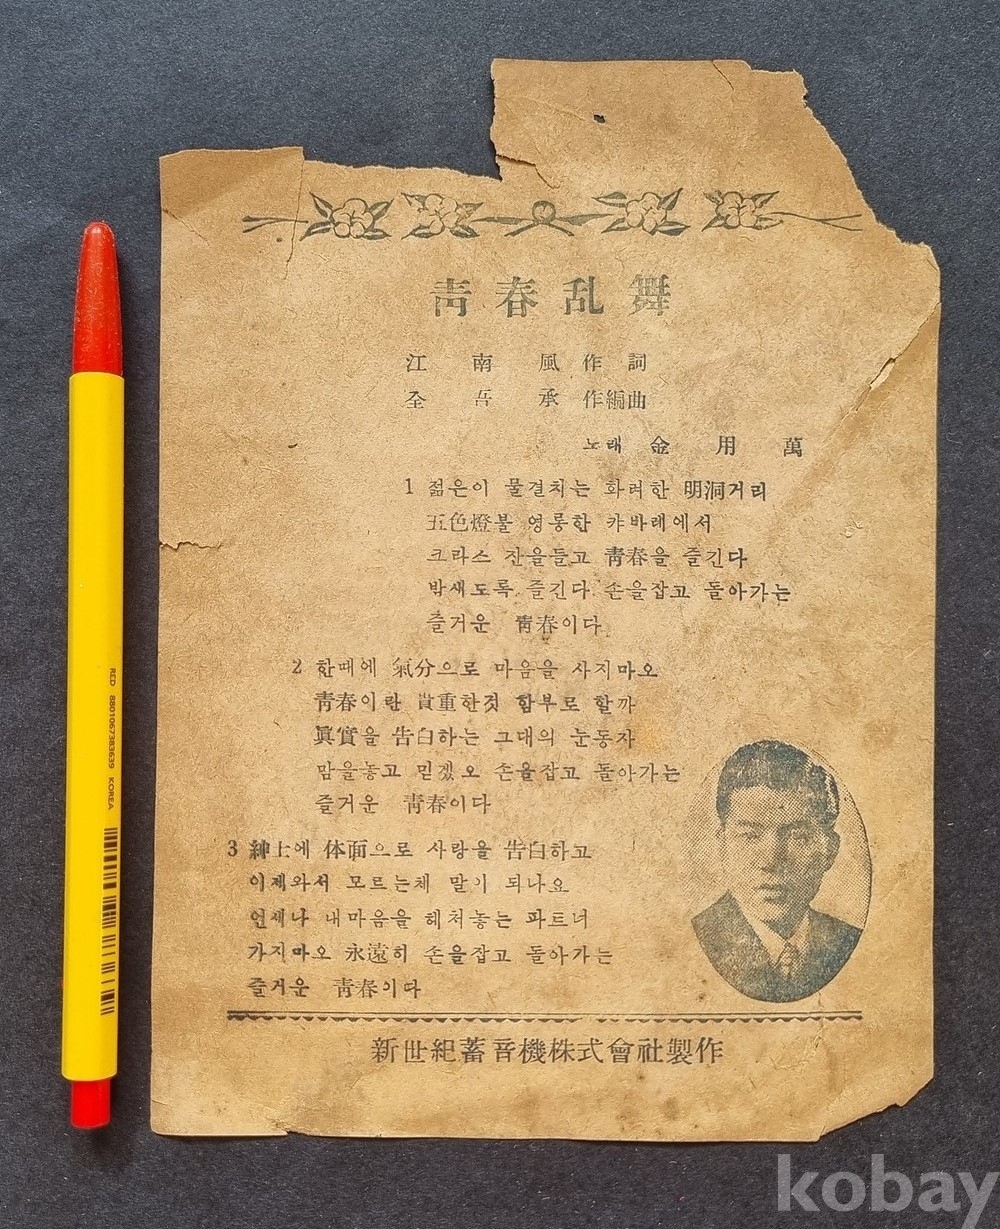 靑春乱舞
江南風 作詞
全吾承 作編曲
노래 金用萬
1 젊은이 물결치는 화려한 明洞거리
五色燈불 영롱한 캬바레에서
크라스 잔을들고 靑春을 즐긴다
밤새도록 즐긴다 손을잡고 돌아가는
즐거운 靑春이다
2 한때에 氣分으로 마음을 사지마오
靑春이란 貴重한것 함부로 할까
眞實을 告白하는 그대의 눈동자
맘을놓고 믿겠오 손을잡고 돌아가는
즐거운 靑春이다
3 紳士에 体面으로 사랑을 告白하고
이제와서 모르는체 말이 되나요
언제나 내마음을 헤처놓는 파트너
가지마오 永遠히 손을잡고 돌아가는
즐거운 靑春이다
新世紀蓄音機株式會社製作
RED 8801067383639 KOREA
kobay